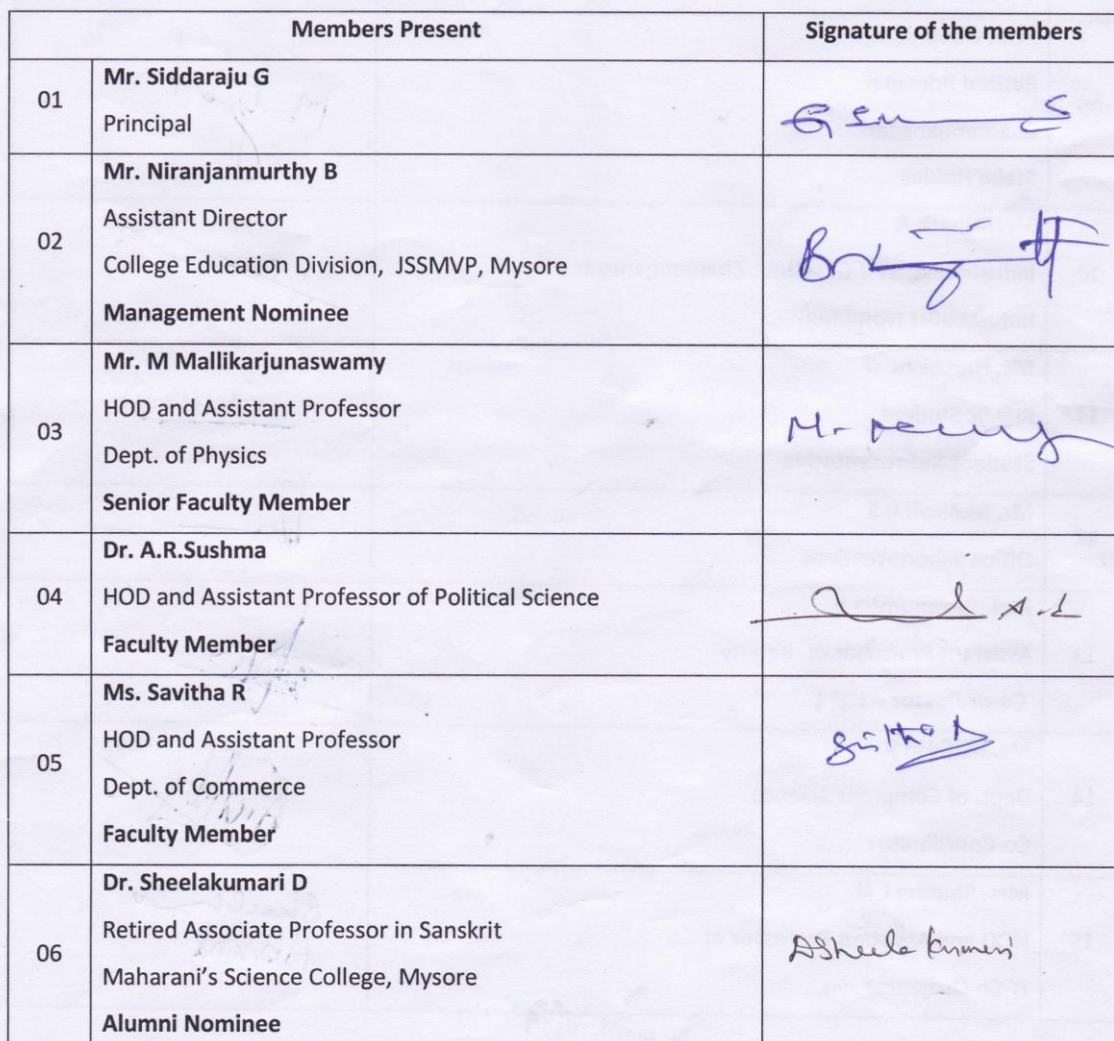 Members Present
Signature of the members
01
Mr. Siddaraju G
Principal
02
Mr. Niranjanmurthy B
Assistant Director
College Education Division, JSSMVP, Mysore
Management Nominee
03
Mr. M Mallikarjunaswamy
HOD and Assistant Professor
Dept. of Physics
Senior Faculty Member
04
Dr. A.R.Sushma
HOD and Assistant Professor of Political Science
Faculty Member
05
Ms. Savitha R
HOD and Assistant Professor
Dept. of Commerce
Faculty Member
06
Dr. Sheelakumari D
Retired Associate Professor in Sanskrit
Maharani's Science College, Mysore
Alumni Nominee
DSheelakumari